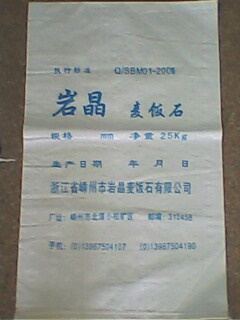 执行标准 Q/SBM01-2006
岩晶 麦饭石
规格 mm 净重25Kg
生产日期 年 月 日
浙江省嵊州市岩晶麦饭石有限公司
厂址:嵊州市北漳小 矿区 邮编:312458
手机:(0)13967504107 (0)13967504190